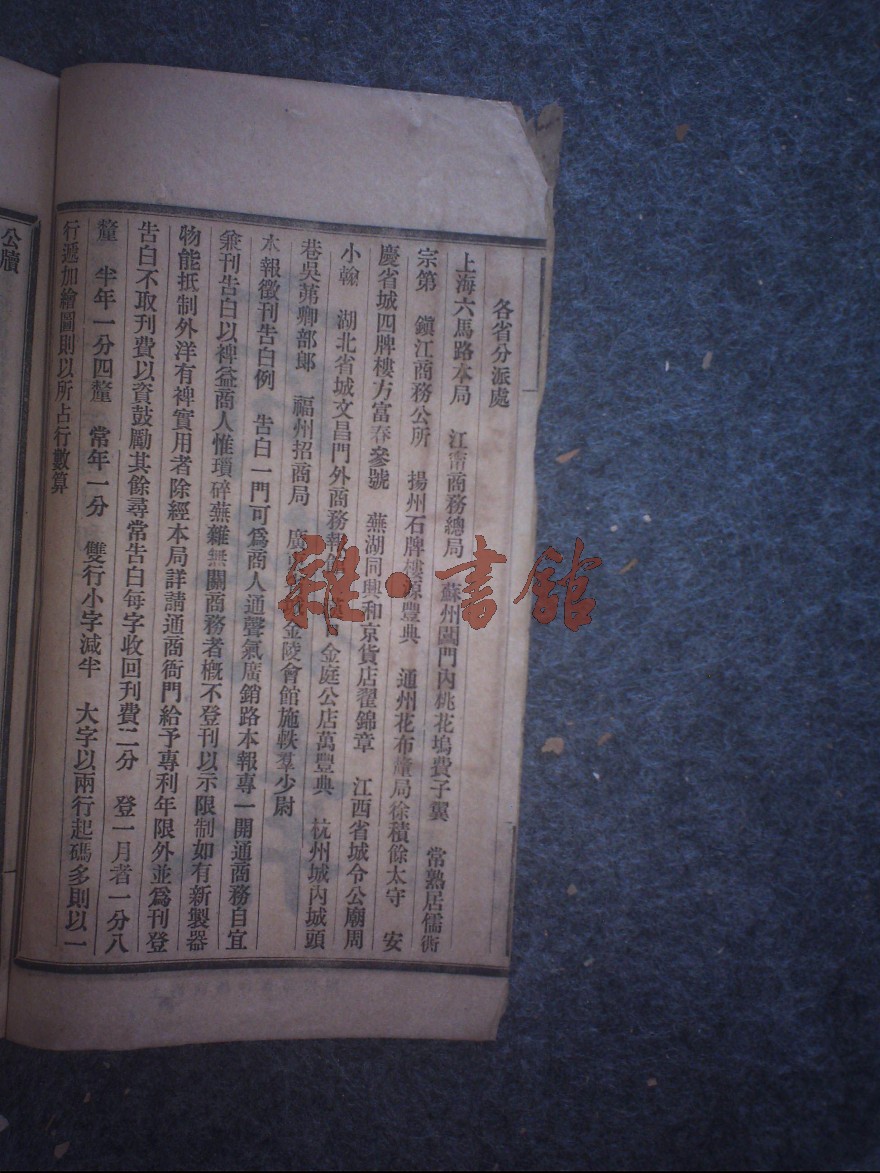 各省分派處
上海六馬路本局　江甯商務總局　蘇州閶門內桃花塢費子翼　常熟居儒衖
宗第　鎭江商務公所　揚州石牌樓 豐典　通州花布釐局徐積餘太守　安
慶省城四牌樓方富春參號　蕪湖同興和京貨店翟錦章　江西省城令公廟周
小翰　湖北省城文昌門外商務報 金庭公店萬豐典　杭州城內城頭
巷吳茀卿部郎　福州招商局　廣 金陵會館施軼羣少尉
本報徵刊告白例　告白一門可爲商人通聲氣廣銷路本報專一開通商務自宜
兼刊告白以裨益商人惟瑣碎蕪雜無關商務者槪不登刊以示限制如有新製器
物能抵制外洋有裨實用者除經本局詳請通商衙門給予專利年限外並爲刊登
告白不取刊費以資鼓勵其餘尋常告白每字收回刊費二分　登一月者一分八
釐　半年一分四釐　常年一分　雙行小字減半　大字以兩行起碼多則以一
行遞加繪圖則以所占行數算
公牘
雜·書館